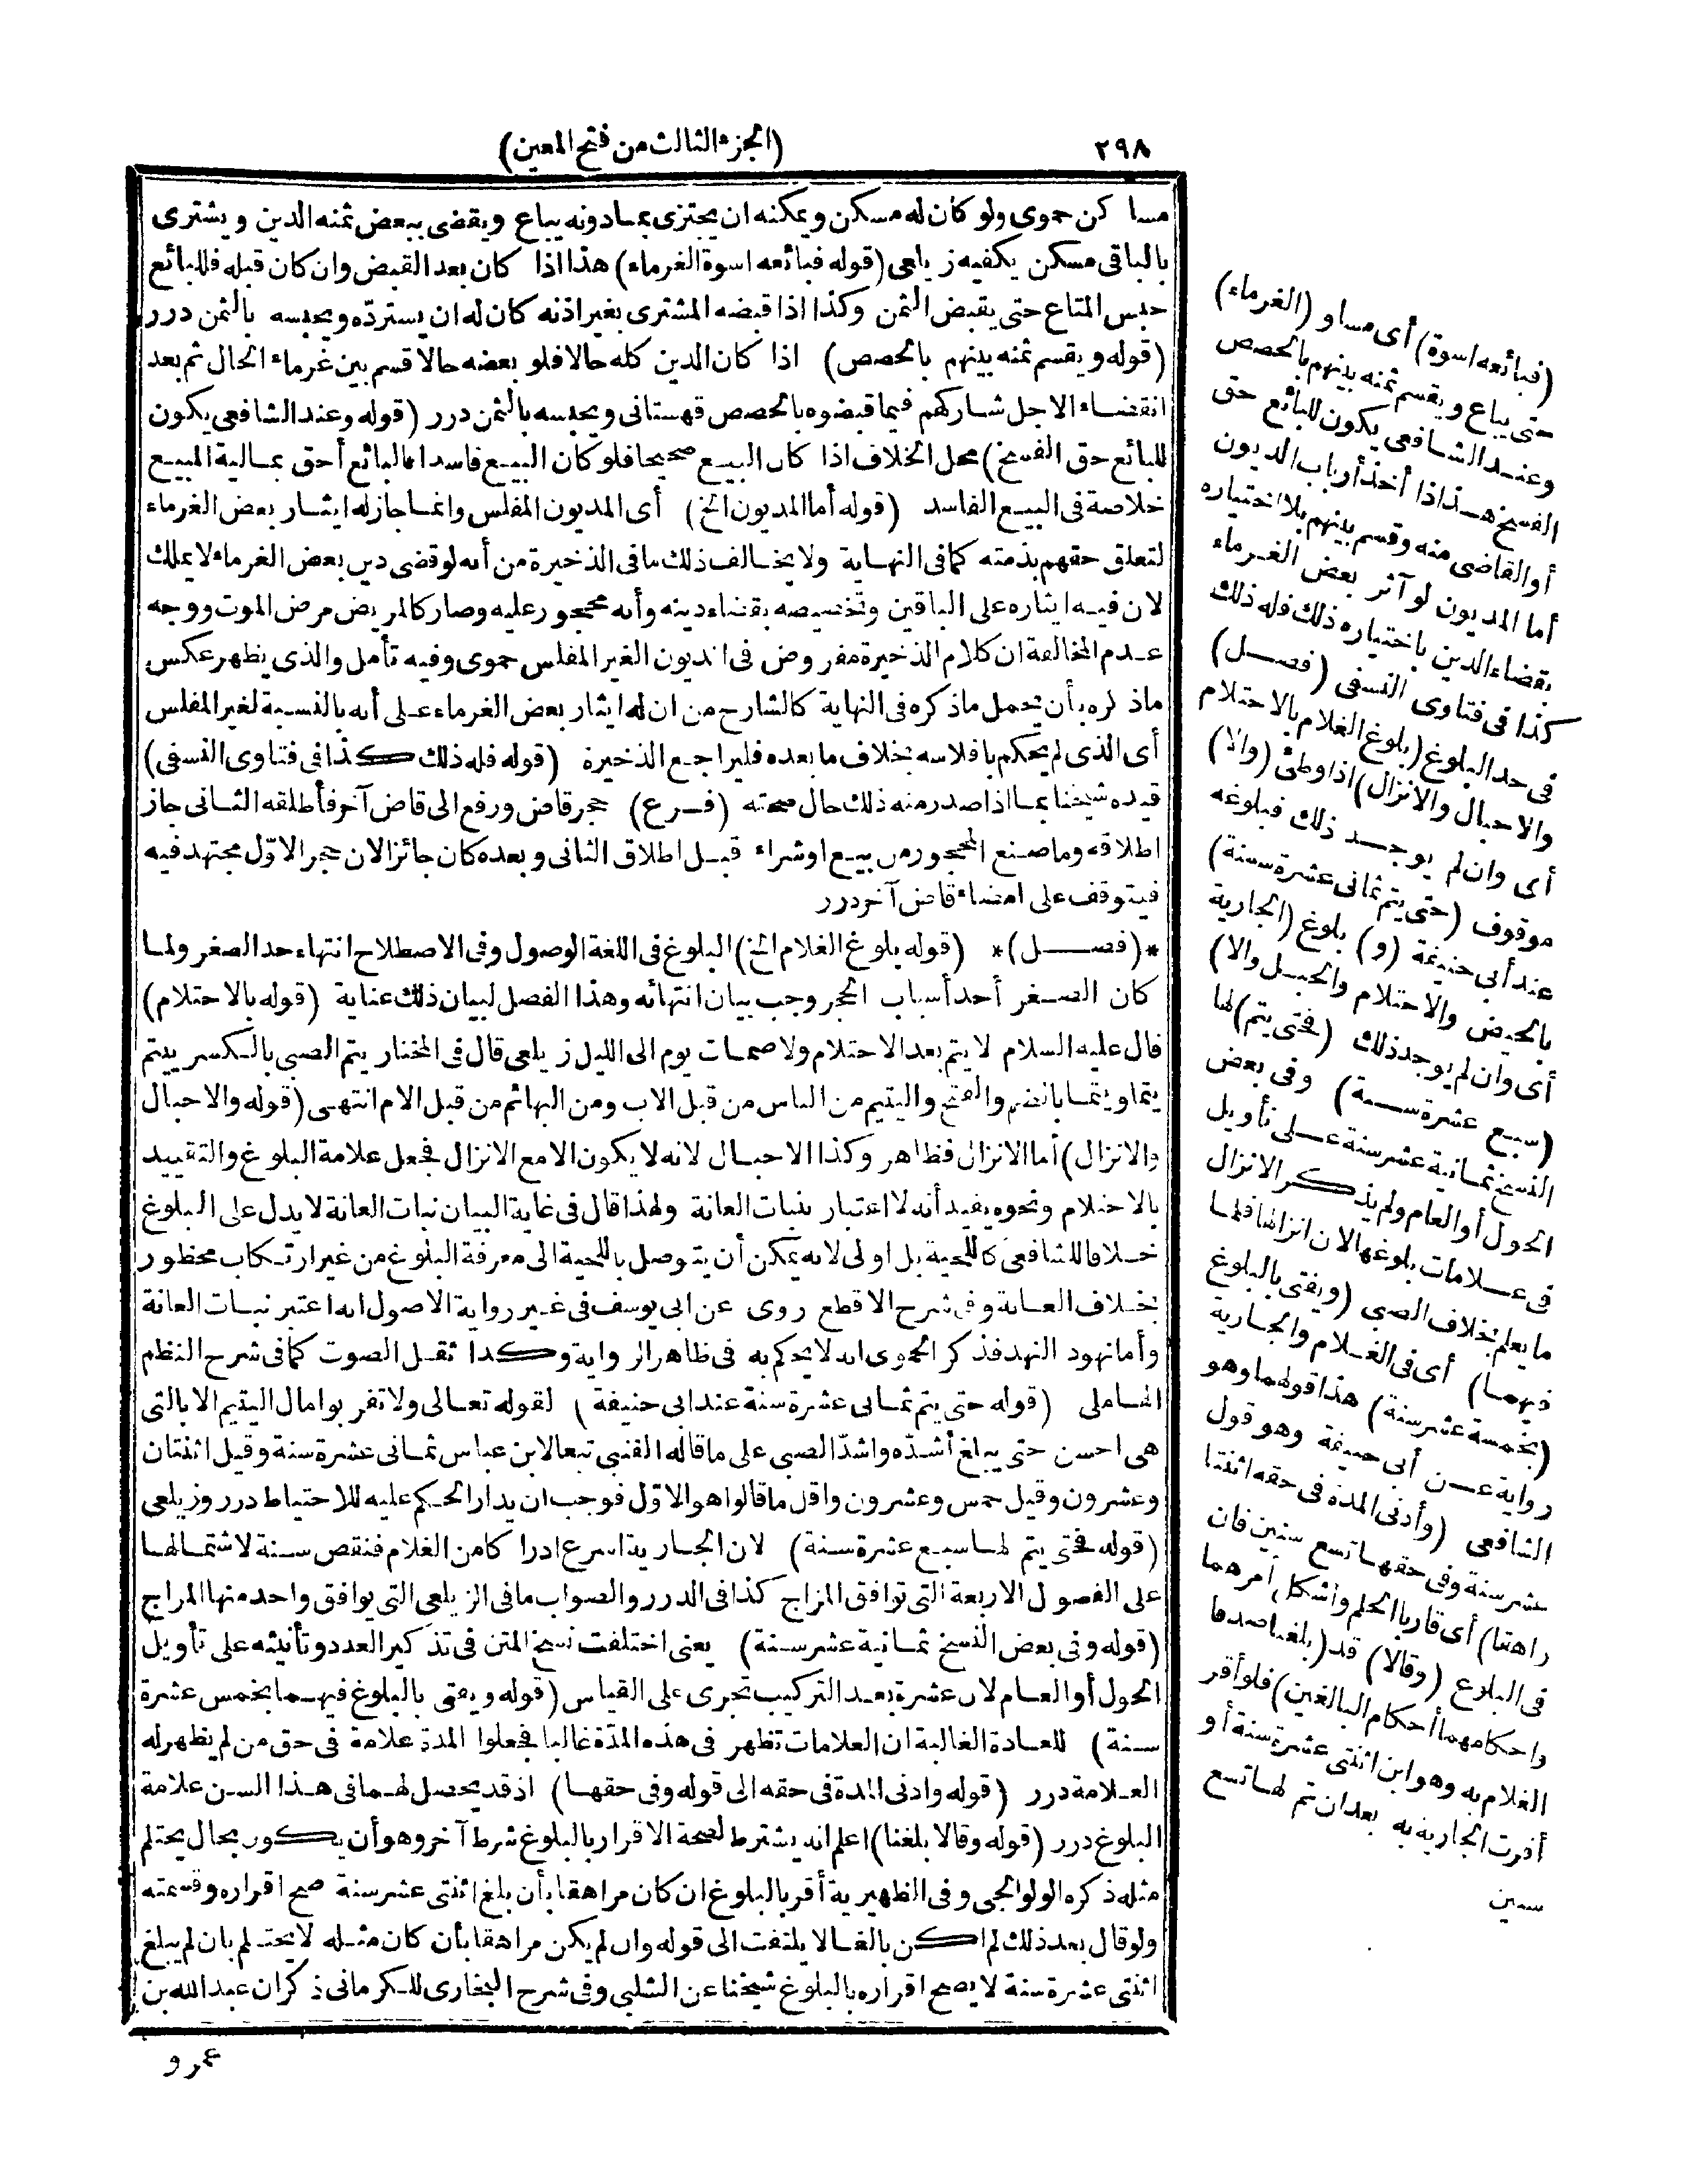 ٢٩٨
(الجزء الثالث من فتح المعين)
مساكن حموى ولو كان له مسكن ويمكنه ان يجتزى بما دونه يباع ويقضى ببعض ثمنه الدين ويشترى
بالباقى مسكن يكفيه زيلعى (قوله فبائعه اسوة الغرماء) هذا اذا كان بعد القبض وان كان قبله فللبائع
حبس المتاع حتى يقبض الثمن وكذا اذا قبضه المشترى بغير اذنه كان له ان يستردّه ويحبسه بالثمن درر
(قوله ويقسم ثمنه بينهم بالحصص) اذا كان الدين كله حالا فلو بعضه حالا قسم بين غرماء الحال ثم بعد
انقضاء الاجل شاركهم فيما قبضوه بالحصص قهستانى ويحبسه بالثمن درر (قوله وعند الشافعى يكون
للبائع حق الفسخ) محل الخلاف اذا كان البيع صحيحا فلو كان البيع فاسدا فالبائع أحق بمالية المبيع
خلاصة فى البيع الفاسد (قوله أما المديون الخ) أى المديون المفلس وانما جاز له ايثار بعض الغرماء
لتعلق حقهم بذمته كما فى النهاية ولا يخالف ذلك ما فى الذخيرة من أنه لو قضى دين بعض الغرماء لا يملك
لان فيه ايثاره على الباقين وتخصيصه بقضاء دينه وأنه محجور عليه وصار كالمريض مرض الموت ووجه
عدم المخالفة ان كلام الذخيرة مفروض فى المديون الغير المفلس حموى وفيه تأمل والذى يظهر عكس
ماذكره بأن يحمل ما ذكره فى النهاية كالشارح من ان له ايثار بعض الغرماء على أنه بالنسبة لغير المفلس
أى الذى لم يحكم بافلاسه بخلاف ما بعده فليراجع الذخيرة (قوله فله ذلك كذا فى فتاوى النسفى)
قيده شيخنا بما اذا صدر منه ذلك حال صحته (فرع) حجر قاض ورفع الى قاض آخر فأطلقه الثانى جاز
اطلاقه وما صنع المحجور من بيع او شراء قبل اطلاق الثانى وبعده كان جائزا لان حجر الاوّل مجتهد فيه
فيتوقف على امضاء قاض آخر درر
*(فصل)* (قوله بلوغ الغلام الخ) البلوغ فى اللغة الوصول وفى الاصطلاح انتهاء حد الصغر ولما
كان الصغر أحد أسباب الحجر وجب بيان انتهائه وهذا الفصل لبيان ذلك عناية (قوله بالاحتلام)
قال عليه السلام لا يتم بعد الاحتلام ولا صمات يوم الى الليل زيلعى قال فى المختار يتم الصبى بالكسر ييتم
يتما ويتما بالضم والفتح واليتيم من الناس من قبل الاب ومن البهائم من قبل الام انتهى (قوله والاحبال
والانزال) أما الانزال فظاهر وكذا الاحبال لانه لا يكون الا مع الانزال فجعل علامة البلوغ والتقييد
بالاحتلام ونحوه يفيد أنه لا اعتبار بنبات العانة ولهذا قال فى غاية البيان نبات العانة لا يدل على البلوغ
خلافا للشافعى كاللحية بل اولى لانه يمكن أن يتوصل باللحية الى معرفة البلوغ من غير ارتكاب محظور
بخلاف العانة وفى شرح الاقطع روى عن ابى يوسف فى غير رواية الاصول انه اعتبر نبات العانة
وأما نهود النهد فذكر الحموى انه لا يحكم به فى ظاهر الرواية وكذا ثقل الصوت كما فى شرح النظم
الهاملى (قوله حتى يتم ثمانى عشرة سنة عند ابى حنيفة) لقوله تعالى ولا تقربوا مال اليتيم الا بالتى
هى احسن حتى يبلغ أشدّه واشدّ الصبى على ما قاله القتبى تبعا لابن عباس ثمانى عشرة سنة وقيل اثنتان
وعشرون وقيل خمس وعشرون واقل ما قالوا هو الاوّل فوجب ان يدار الحكم عليه للاحتياط درر وزيلعى
(قوله فحتى يتم لها سبع عشرة سنة) لان الجارية اسرع ادراكا من الغلام فنقص سنة لاشتمالها
على الفصول الاربعة التى توافق المزاج كذا فى الدرر والصواب ما فى الزيلعى التى يوافق واحد منها المزاج
(قوله وفى بعض النسخ ثمانية عشر سنة) يعنى اختلفت نسخ المتن فى تذكير العدد وتأنيثه على تأويل
الحول أو العام لان عشرة بعد التركيب تجرى على القياس (قوله ويفتى بالبلوغ فيهما بخمس عشرة
سنة) للعادة الغالبة ان العلامات تظهر فى هذه المدّة غالبا فجعلوا المدة علامة فى حق من لم يظهر له
العلامة درر (قوله وادنى المدة فى حقه الى قوله وفى حقها) اذ قد يحصل لهما فى هذا السن علامة
البلوغ درر (قوله وقالا بلغنا) اعلم انه يشترط لصحة الاقرار بالبلوغ شرط آخر وهو أن يكون بحال يحتلم
مثله ذكره الولوالجى وفى الظهيرية أقر بالبلوغ ان كان مراهقا بأن بلغ اثنتى عشر سنة صح اقراره وقسمته
ولو قال بعد ذلك لم اكن بالغا لا يلتفت الى قوله وان لم يكن مراهقا بأن كان مثله لا يحتلم بان لم يبلغ
اثنتى عشرة سنة لا يصح اقراره بالبلوغ شيخنا عن الشلبى وفى شرح البخارى للكرمانى ذكر ان عبد الله بن
عمرو
(فبائعه اسوة) أى مساو (الغرماء)
حتى يباع ويقسم ثمنه بينهم بالحصص
وعند الشافعى يكون للبائع حق
الفسخ هذا اذا أخذ أرباب الديون
أو القاضى منه وقسم بينهم بلا اختياره
أما المديون لو آثر بعض الغرماء
بقضاء الدين باختياره ذلك فله ذلك
كذا فى فتاوى النسفى (فصل)
فى حد البلوغ (بلوغ الغلام بالاحتلام
والاحبال والانزال) اذا وطئ (والا)
أى وان لم يوجد ذلك فبلوغه
موقوف (حتى يتم ثمانى عشرة سنة)
عند أبى حنيفة (و) بلوغ (الجارية
بالحيض والاحتلام والحبل والا)
أى وان لم يوجد ذلك (فحتى يتم) لها
(سبع عشرة سنة) وفى بعض
النسخ ثمانية عشر سنة على تأويل
الحول أو العام ولم يذكر الانزال
فى علامات بلوغها لان انزالها قلما
ما يعلم بخلاف الصبى (ويفتى بالبلوغ
فيهما) أى فى الغلام والجارية
(بخمسة عشر سنة) هذا قولهما وهو
رواية عن أبى حنيفة وهو قول
الشافعى (وأدنى المدة فى حقه اثنتا
عشر سنة وفى حقها تسع سنين فان
راهقا) أى قاربا الحلم واشكل امرهما
فى البلوغ (وقالا) قد (بلغنا صدقا
واحكامهما أحكام البالغين) فلو أقر
الغلام به وهو ابن اثنتى عشرة سنة أو
أقرت الجارية به بعد ان تم لها تسع
سنين